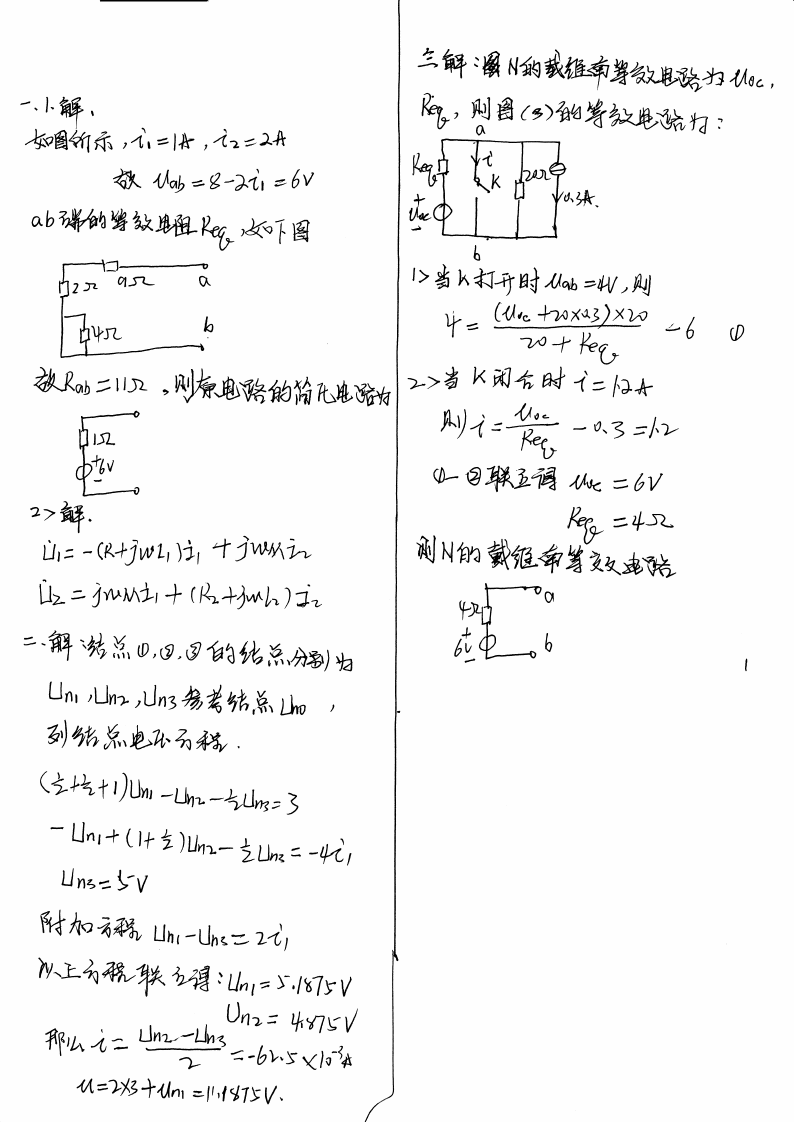 一、1.解、
如图所示，i₁=1A，i₂=2A
故 Uab=8-2i₁=6V
ab端的等效电阻Req，如下图
2Ω 9Ω a
4Ω b
故Rab=11Ω，则原电路的简化电路为
1Ω
+
6V
-
2>解.
U̇₁=-(R+jwL₁)i̇₁+jwMi̇₂
U̇₂=jwMi̇₁+(R₂+jwL₂)i̇₂
二、解：结点①,②,③的结点分别为
Un1,Un2,Un3参考结点Un0，
列结点电压方程.
(½+½+1)Un1-Un2-½Un3=3
-Un1+(1+½)Un2-½Un3=-4i₁
Un3=5V
附加方程 Un1-Un3=2i₁
以上方程联立得:Un1=5.1875V
Un2=4.875V
那么 i=(Un2-Un3)/2=-62.5×10⁻³A
u=2×3+Un1=11.1875V.
三、解:图N的戴维南等效电路为Uoc,
Req，则图(3)的等效电路为:
a
Req i K 20Ω
+
Uoc 0.3A.
-
b
1>当K打开时Uab=4V,则
4=(Uoc+20×0.3)×20/(20+Req) -6 ①
2>当K闭合时 i=1.2A
则 i=Uoc/Req -0.3=1.2
①-②联立得 Uoc=6V
Req=4Ω
则N的戴维南等效电路
a
4Ω
+
6V b
-
1